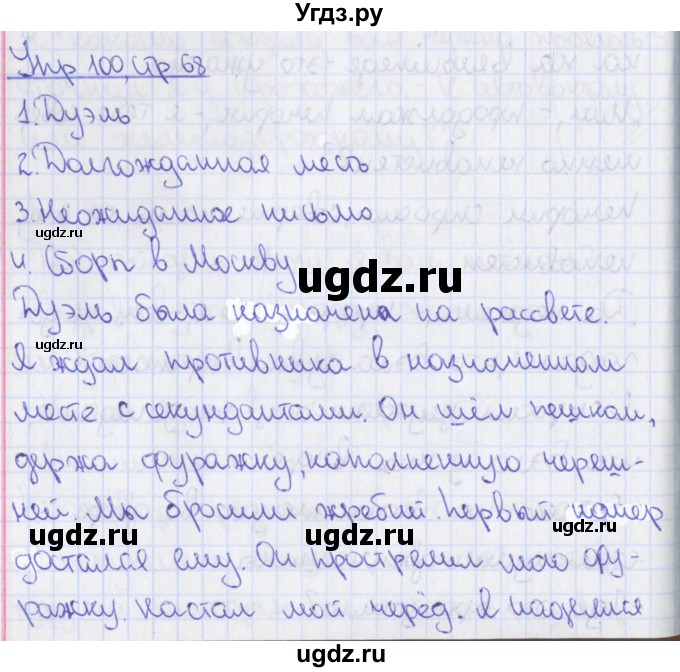 Угдз.ру
Упр 100, стр 68
1. Дуэль
2. Долгожданная месть
3. Неожиданное письмо
4. Сборы в Москву
Дуэль была назначена на рассвете.
Я ждал противника в назначенном
месте с секундантами. Он шёл пешком,
держа фуражку, наполненную череш-
ней. Мы бросили жребий. Первый номер
достался ему. Он прострелил мою фу-
ражку. Настал мой черёд. Я надеялся
ugdz.ru
ugdz.ru
ugdz.ru
ugdz.ru
ugdz.ru
ugdz.ru
ugdz.ru
ugdz.ru